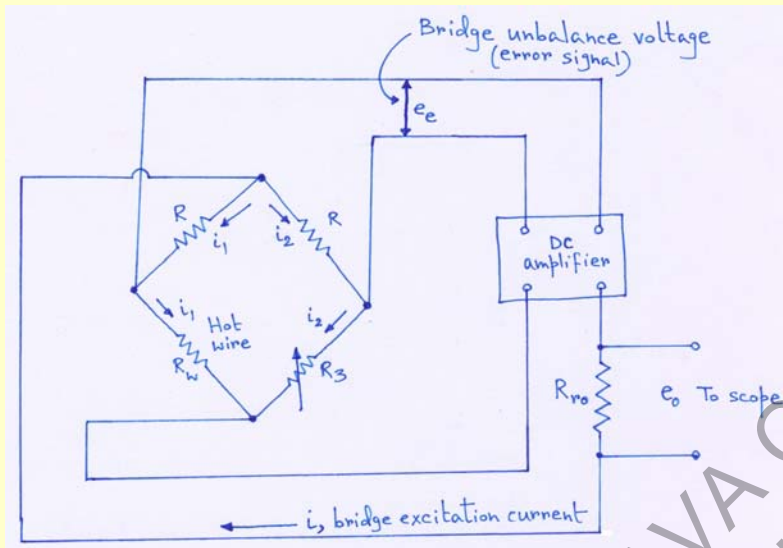 Bridge unbalance voltage
(error signal)
e_e
R
R
i_1
i_2
DC
amplifier
i_1
Hot
wire
i_2
R_w
R_3
R_ro
e_o To scope
i, bridge excitation current
VA